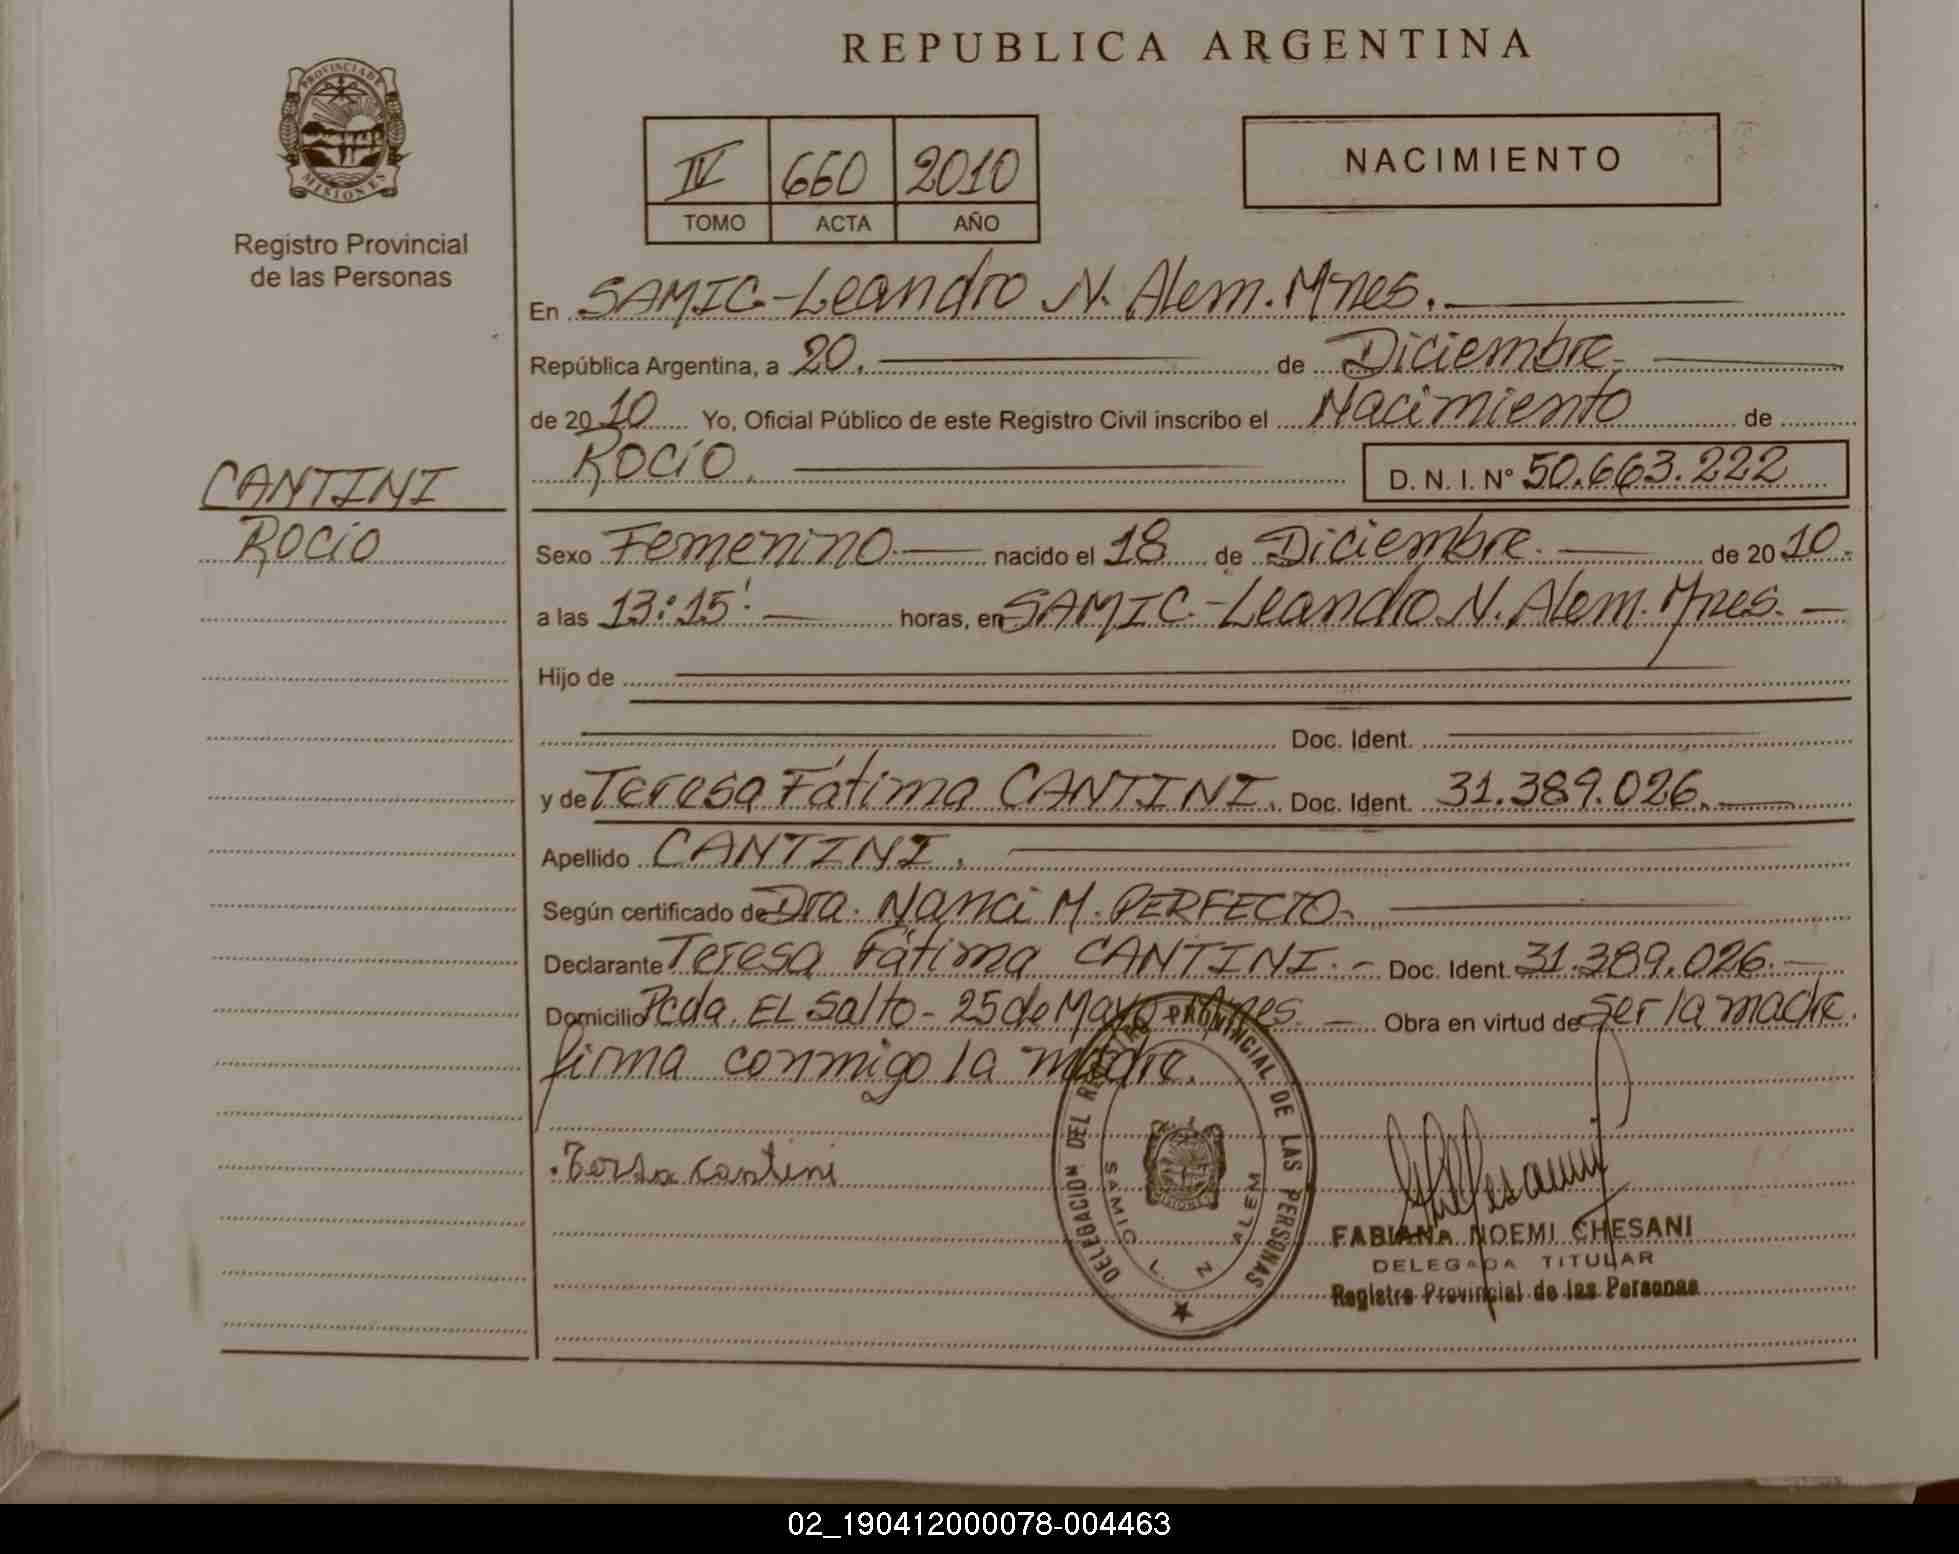 REPUBLICA ARGENTINA
PROVINCIA DE
MISIONES
Registro Provincial
de las Personas
IV 660 2010
TOMO ACTA AÑO
NACIMIENTO
En SAMIC-Leandro N. Alem. Mnes.
República Argentina, a 20. de Diciembre
de 2010 Yo, Oficial Público de este Registro Civil inscribo el Nacimiento de
Rocío. D. N. I. N° 50.663.222
CANTINI
Rocío
Sexo Femenino. nacido el 18 de Diciembre. de 2010.
a las 13:15' horas, en SAMIC.-Leandro N. Alem. Mnes.
Hijo de
Doc. Ident.
y de Teresa Fátima CANTINI. Doc. Ident. 31.389.026.
Apellido CANTINI.
Según certificado de Dra. Nanci M. PERFECTO.
Declarante Teresa Fátima CANTINI. - Doc. Ident. 31.389.026.
Domicilio Pcda. EL Salto - 25 de Mayo - Mnes. Obra en virtud de ser la madre.
firma conmigo la madre.
DELEGACION DEL REGISTRO PROVINCIAL DE LAS PERSONAS
SAMIC L. N. ALEM
MISIONES
FABIANA NOEMI CHESANI
DELEGADA TITULAR
Registro Provincial de las Personas
02_190412000078-004463